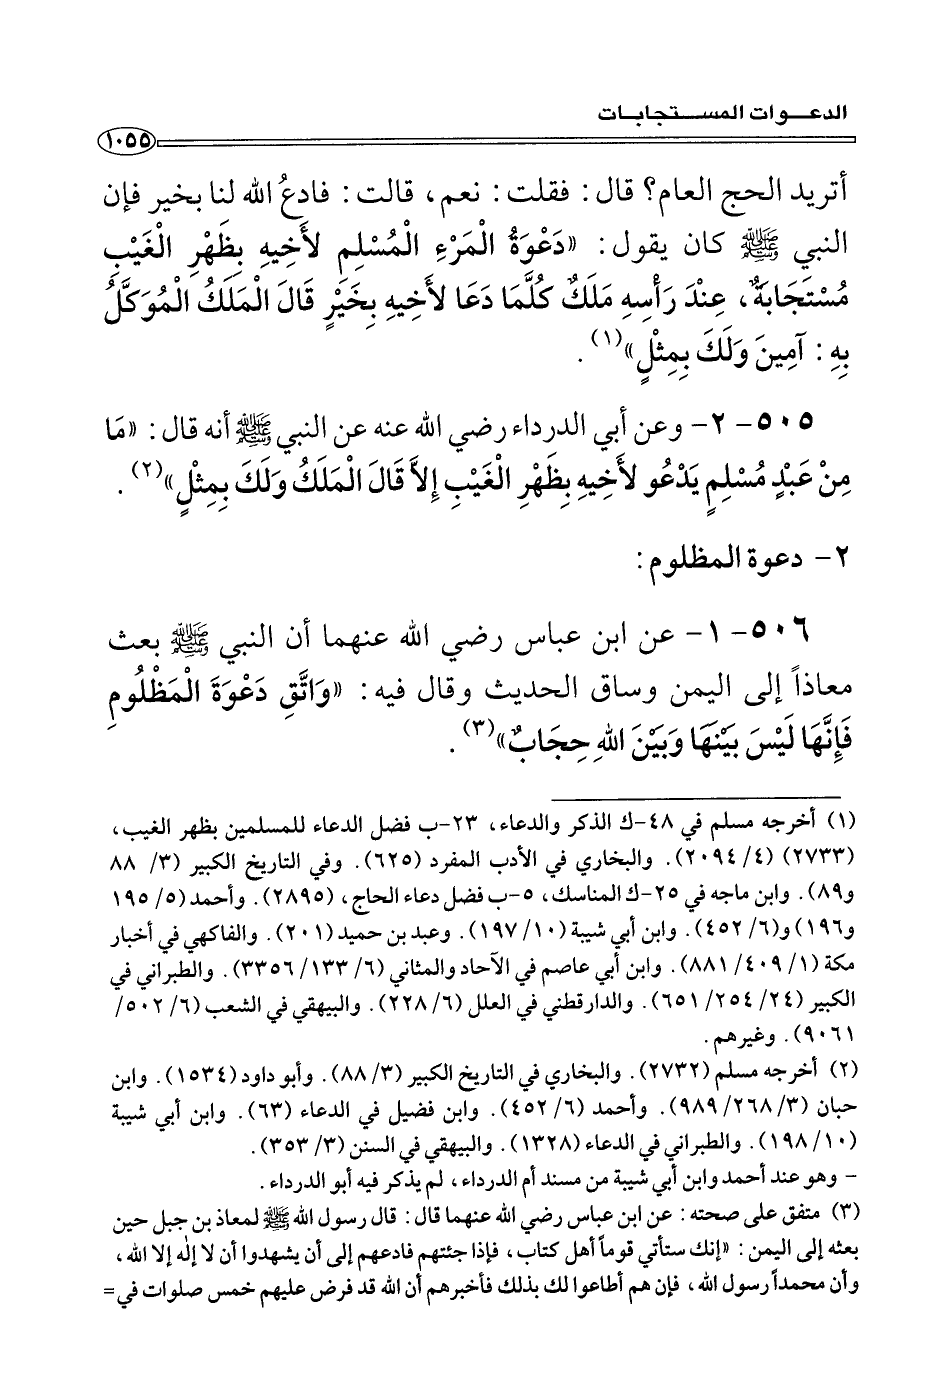 الدعــوات المســتجابــات
١٠٥٥
أتريد الحج العام؟ قال: فقلت: نعم، قالت: فادعُ الله لنا بخير فإن
النبي ﷺ كان يقول: «دَعْوَةُ الْمَرْءِ الْمُسْلِمِ لأَخِيهِ بِظَهْرِ الْغَيْبِ
مُسْتَجَابَةٌ، عِنْدَ رَأْسِهِ مَلَكٌ كُلَّمَا دَعَا لأَخِيهِ بِخَيْرٍ قَالَ الْمَلَكُ الْمُوَكَّلُ
بِهِ: آمِينَ وَلَكَ بِمِثْلٍ»(١).
٥٠٥- ٢- وعن أبي الدرداء رضي الله عنه عن النبي ﷺ أنه قال: «مَا
مِنْ عَبْدٍ مُسْلِمٍ يَدْعُو لأَخِيهِ بِظَهْرِ الْغَيْبِ إِلاَّ قَالَ الْمَلَكُ وَلَكَ بِمِثْلٍ»(٢).
٢- دعوة المظلوم:
٥٠٦- ١- عن ابن عباس رضي الله عنهما أن النبي ﷺ بعث
معاذاً إلى اليمن وساق الحديث وقال فيه: «وَاتَّقِ دَعْوَةَ الْمَظْلُومِ
فَإِنَّهَا لَيْسَ بَيْنَهَا وَبَيْنَ اللهِ حِجَابٌ»(٣).
(١) أخرجه مسلم في ٤٨-ك الذكر والدعاء، ٢٣-ب فضل الدعاء للمسلمين بظهر الغيب،
(٢٧٣٣) (٤/ ٢٠٩٤). والبخاري في الأدب المفرد (٦٢٥). وفي التاريخ الكبير (٣/ ٨٨
و٨٩). وابن ماجه في ٢٥-ك المناسك، ٥-ب فضل دعاء الحاج، (٢٨٩٥). وأحمد (٥/ ١٩٥
و١٩٦) و(٦/ ٤٥٢). وابن أبي شيبة (١٠/ ١٩٧). وعبد بن حميد (٢٠١). والفاكهي في أخبار
مكة (١/ ٤٠٩/ ٨٨١). وابن أبي عاصم في الآحاد والمثاني (٦/ ١٣٣/ ٣٣٥٦). والطبراني في
الكبير (٢٤/ ٢٥٤/ ٦٥١). والدارقطني في العلل (٦/ ٢٢٨). والبيهقي في الشعب (٦/ ٥٠٢/
٩٠٦١). وغيرهم.
(٢) أخرجه مسلم (٢٧٣٢). والبخاري في التاريخ الكبير (٣/ ٨٨). وأبو داود (١٥٣٤). وابن
حبان (٣/ ٢٦٨/ ٩٨٩). وأحمد (٦/ ٤٥٢). وابن فضيل في الدعاء (٦٣). وابن أبي شيبة
(١٠/ ١٩٨). والطبراني في الدعاء (١٣٢٨). والبيهقي في السنن (٣/ ٣٥٣).
- وهو عند أحمد وابن أبي شيبة من مسند أم الدرداء، لم يذكر فيه أبو الدرداء.
(٣) متفق على صحته: عن ابن عباس رضي الله عنهما قال: قال رسول الله ﷺ لمعاذ بن جبل حين
بعثه إلى اليمن: «إنك ستأتي قوماً أهل كتاب، فإذا جئتهم فادعهم إلى أن يشهدوا أن لا إله إلا الله،
وأن محمداً رسول الله، فإن هم أطاعوا لك بذلك فأخبرهم أن الله قد فرض عليهم خمس صلوات في=